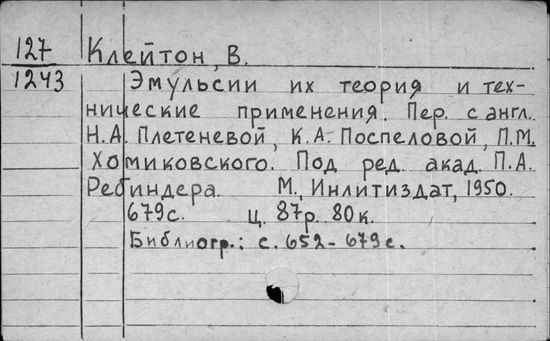 127 Клейтон, В.
1243 Эмульсии их теория и тех-
нические применения. Пер. с англ.
Н.А. Плетеневой, К.А. Поспеловой, П.М.
Хомиковского. Под ред. акад. П.А.
Ребиндера. М., Инлитиздат, 1950.
679с. ц. 87р. 80к.
Библиогр.: с. 652-679с.